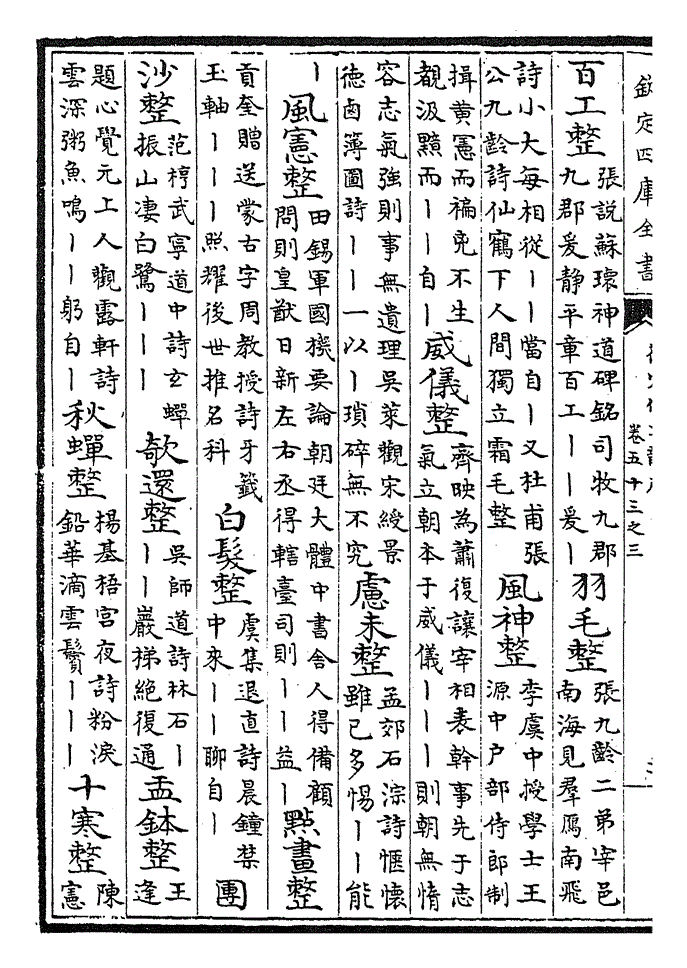 欽定四庫全書
卷五十三之三
百工整 張説蘇瓌神道碑銘司牧九郡九郡爰静平章百工丨丨爰丨 羽毛整 張九齡二弟宰邑南海見羣鴈南飛
詩小大每相從丨丨當自丨又杜甫張公九齡詩仙鶴下人間獨立霜毛整 風神整 李虞中授學士王源中户部侍郎制
揖黄憲而褊克不生覩汲黯而丨丨自丨 威儀整 齊映為蕭復讓宰相表幹事先于志氣立朝本于威儀丨丨丨則朝無惰
容志氣強則事無遺理吳萊觀宋綬景徳鹵簿圖詩丨丨一以丨瑣碎無不究 慮未整 孟郊石淙詩愜懷雖已多惕丨丨能
丨 風憲整 田錫軍國機要論朝廷大體中書舍人得備顧問則皇猷日新左右丞得轄臺司則丨丨益丨 點畫整
貢奎贈送蒙古字周教授詩牙籤玉軸丨丨丨照耀後世推名科 白髮整 虞集退直詩晨鐘禁中來丨丨聊自丨 團
沙整 范梈武寧道中詩玄蟬振山凄白鷺丨丨丨 欹還整 吳師道詩林石丨丨丨巖梯絶復通 盂鉢整 王逢
題心覺元上人觀露軒詩雲深粥魚鳴丨丨躬自丨 秋蟬整 楊基梧宫夜詩粉淚鉛華滴雲鬢丨丨丨 十寒整 陳憲